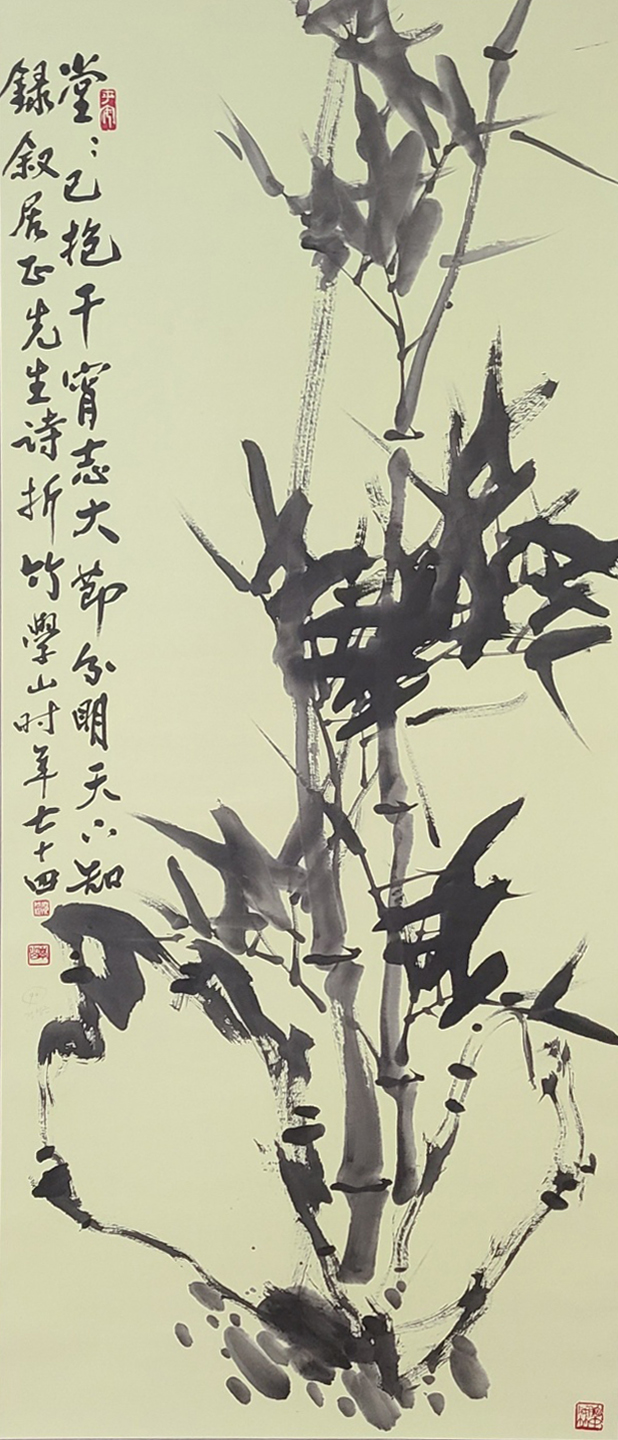 堂〻已抱干宵志大節分明天下知
録叙居正先生詩折竹學山时年七十四